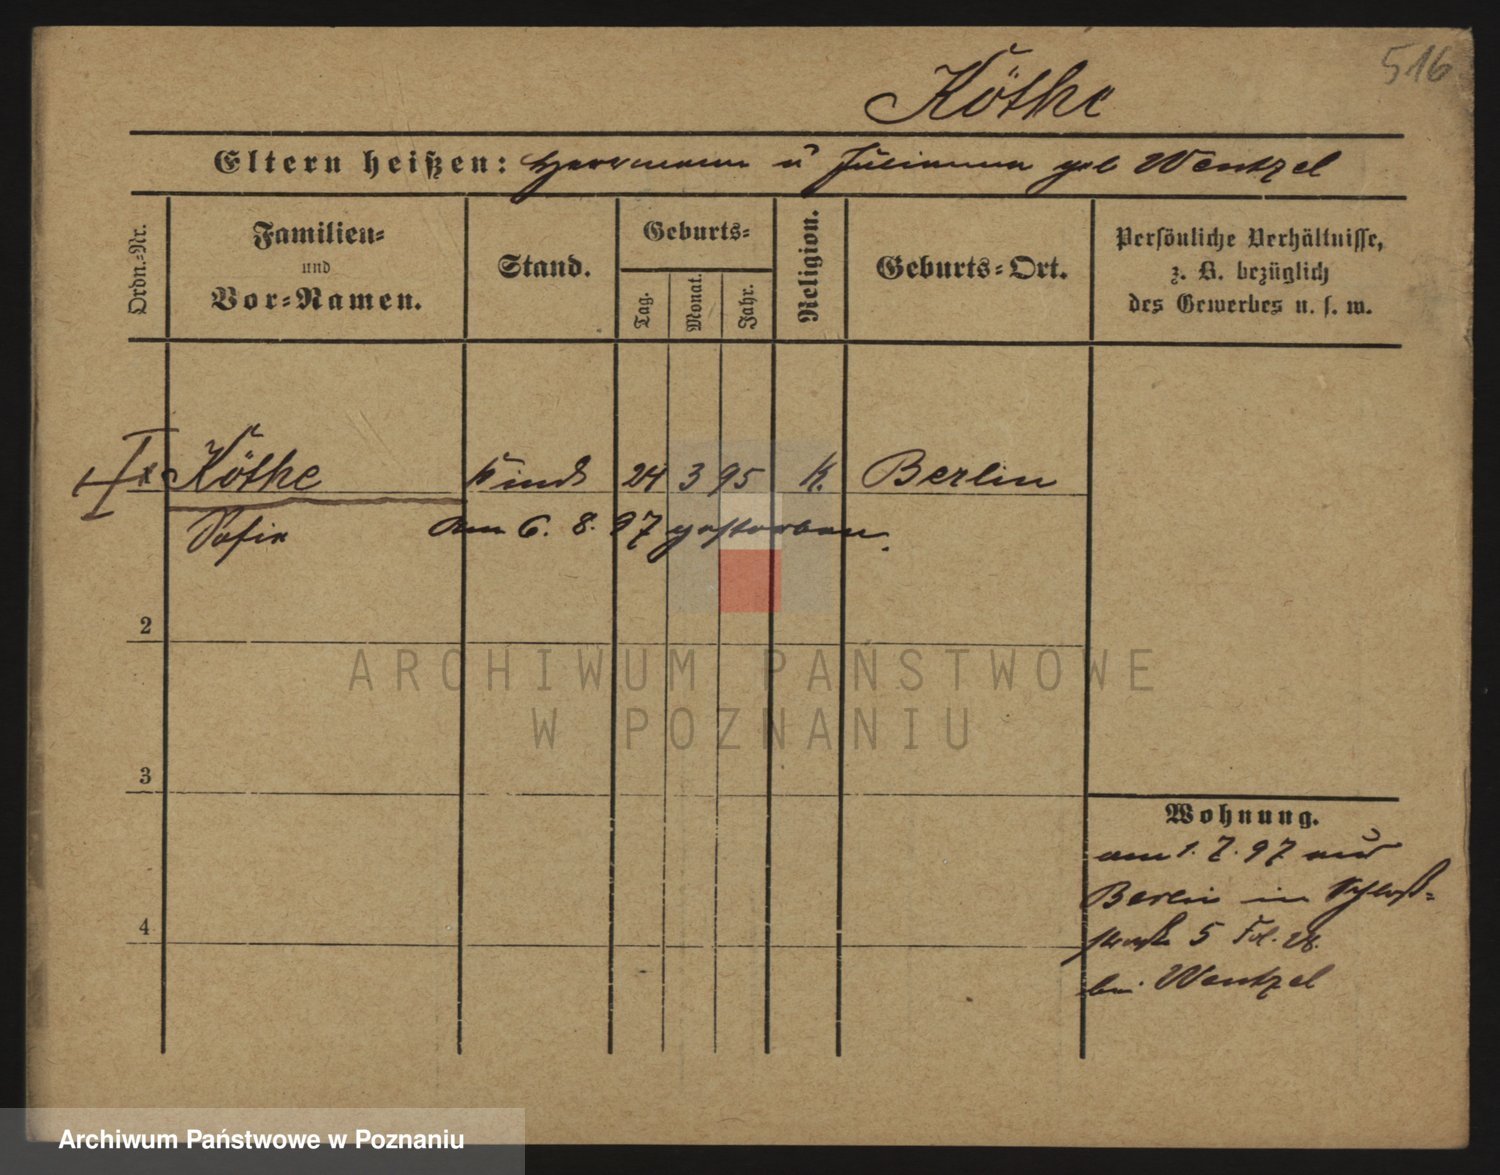 516
Köthe
Eltern heißen: Herrmann u Julianna geb Wentzel
Ordn.-Nr.
Familien-
und
Vor-Namen.
Stand.
Geburts-
Tag.
Monat.
Jahr.
Religion.
Geburts-Ort.
Persönliche Verhältnisse,
z. B. bezüglich
des Gewerbes u. s. w.
Köthe Kind 24 3 95 K. Berlin
Sofie am 6. 8. 97 gestorben.
2
ARCHIWUM PAŃSTWOWE
W POZNANIU
3
Wohnung.
am 1. 7. 97 aus
Berlin in Schloß-
straße 5 Fol. 28.
bei Wentzel
4
Archiwum Państwowe w Poznaniu